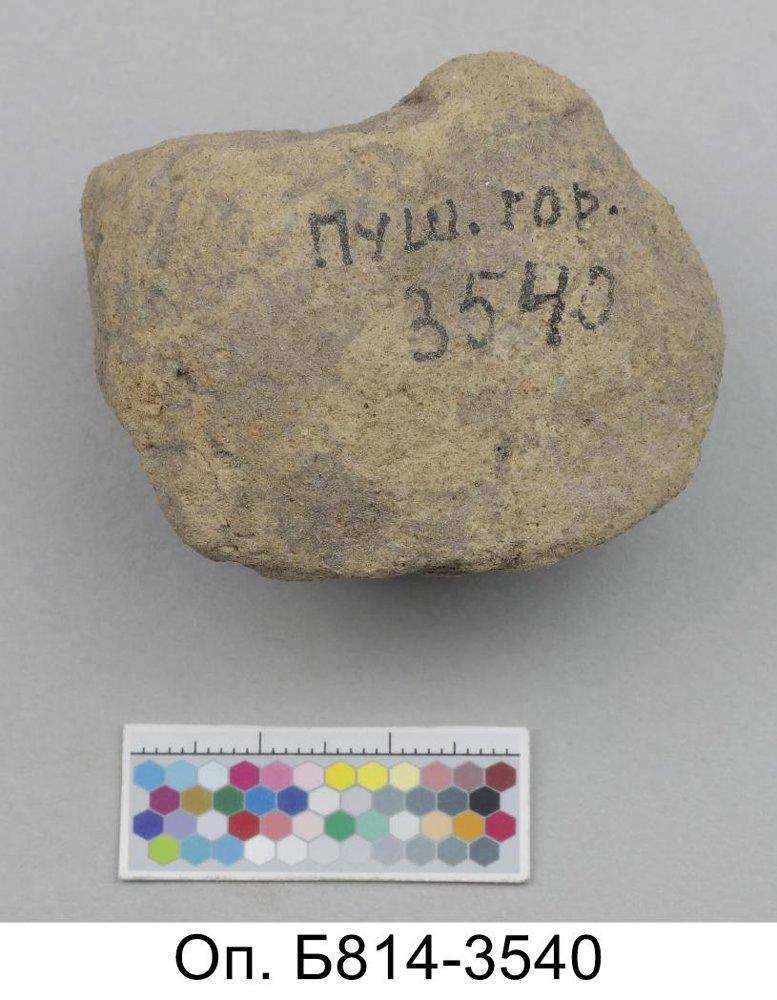 Пуш. гор.
3540
Оп. Б814-3540